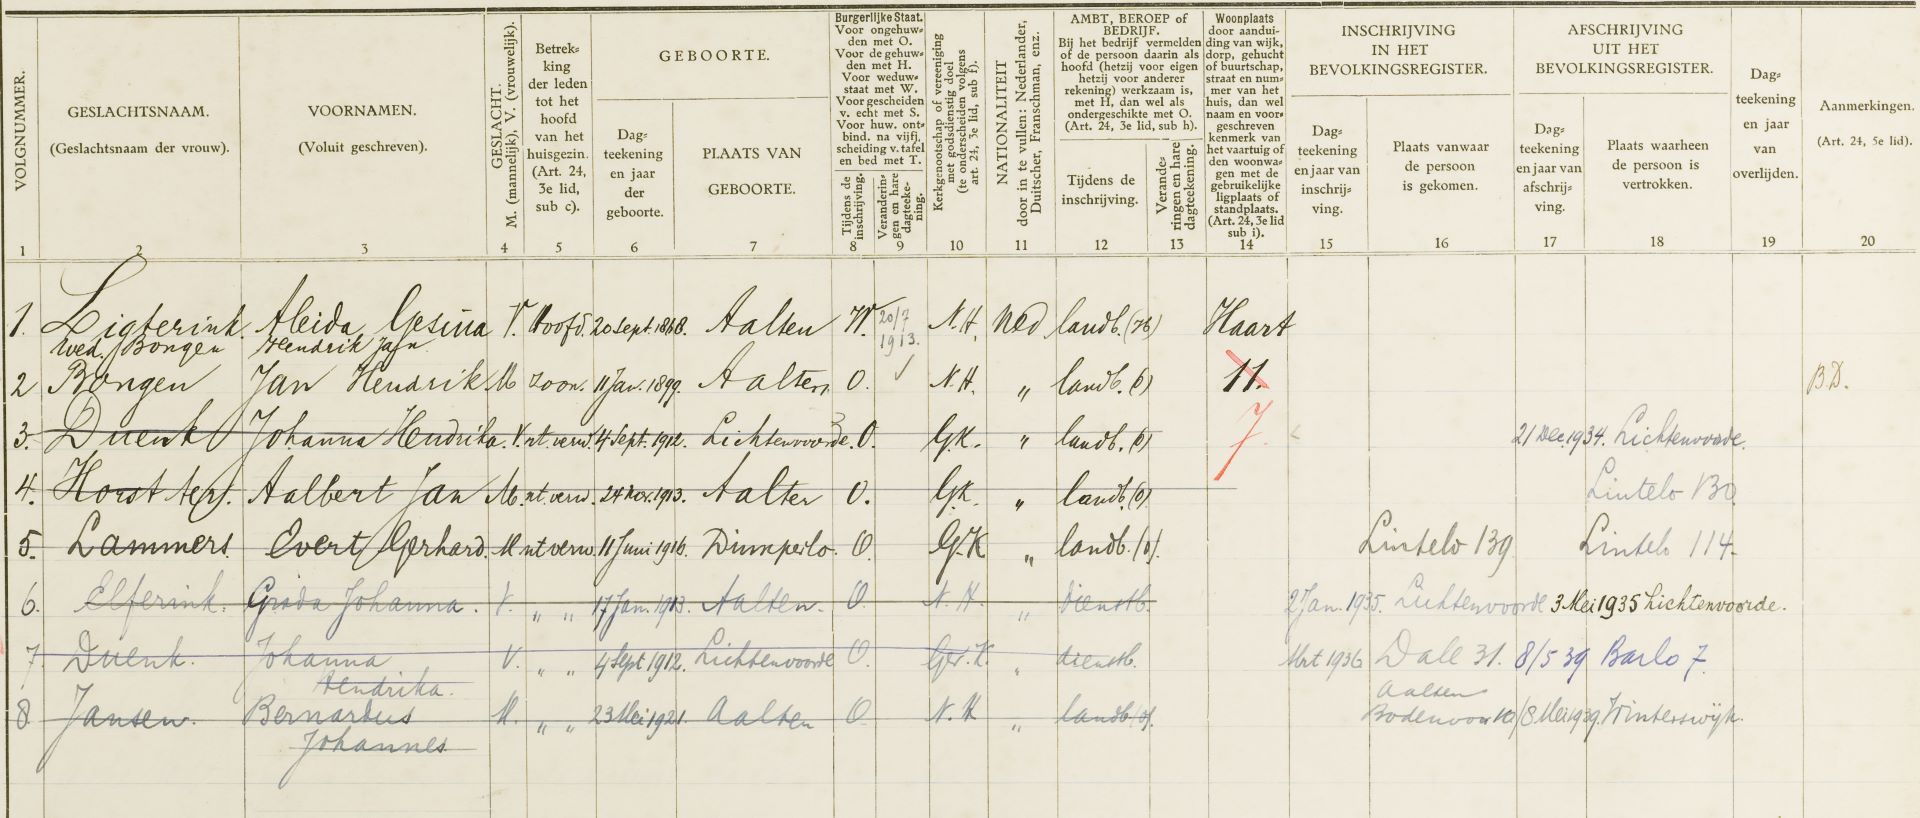 VOLGNUMMER.
1
GESLACHTSNAAM.
(Geslachtsnaam der vrouw).
2
VOORNAMEN.
(Voluit geschreven).
3
GESLACHT.
M. (mannelijk), V. (vrouwelijk).
4
Betrek-
king
der leden
tot het
hoofd
van het
huisgezin.
(Art. 24,
3e lid,
sub c).
5
GEBOORTE.
Dag-
teekening
en jaar
der
geboorte.
6
PLAATS VAN
GEBOORTE.
7
Burgerlijke Staat.
Voor ongehuw-
den met O.
Voor de gehuw-
den met H.
Voor weduw-
staat met W.
Voor gescheiden
v. echt met S.
Voor huw. ont-
bind. na vijfj.
scheiding v. tafel
en bed met T.
Tijdens de
inschrijving.
8
Veranderin-
gen en hare
dagteeke-
ning.
9
Kerkgenootschap of vereeniging
met godsdienstig doel
(te onderscheiden volgens
art. 24, 3e lid, sub f).
10
NATIONALITEIT
door in te vullen: Nederlander,
Duitscher, Franschman, enz.
11
AMBT, BEROEP of
BEDRIJF.
Bij het bedrijf vermelden
of de persoon daarin als
hoofd (hetzij voor eigen
hetzij voor anderer
rekening) werkzaam is,
met H, dan wel als
ondergeschikte met O.
(Art. 24, 3e lid, sub h).
Tijdens de
inschrijving.
12
Verande-
ringen en hare
dagteekening.
13
Woonplaats
door aandui-
ding van wijk,
dorp, gehucht
of buurtschap,
straat en num-
mer van het
huis, dan wel
naam en voor-
geschreven
kenmerk van
het vaartuig of
den woonwa-
gen met de
gebruikelijke
ligplaats of
standplaats.
(Art. 24, 3e lid
sub i).
14
INSCHRIJVING
IN HET
BEVOLKINGSREGISTER.
Dag-
teekening
en jaar van
inschrij-
ving.
15
Plaats vanwaar
de persoon
is gekomen.
16
AFSCHRIJVING
UIT HET
BEVOLKINGSREGISTER.
Dag-
teekening
en jaar van
afschrij-
ving.
17
Plaats waarheen
de persoon is
vertrokken.
18
Dag-
teekening
en jaar
van
overlijden.
19
Aanmerkingen.
(Art. 24, 5e lid).
20
1. Ligterink. Aleida Gesina V. Hoofd. 20 Sept. 1868. Aalten W. 20/7 1913. N.H. Ned landb. (H) Haart
wed. Bongen Hendrik Jan
2 Bongen Jan Hendrik M zoon. 11 Jan. 1899. Aalten O. ✓ N.H. „ landb. (o) 11. B.D.
3. Duenk Johanna Hendrika. V. nt. verw. 4 Sept. 1912. Lichtenvoorde. O. G.K. „ landb. (o) 7. 21 Dec. 1934. Lichtenvoorde.
4. Horst ter. Aalbert Jan M. nt. verw. 24 Nov. 1913. Aalten O. G.K. „ landb. (o) Lintelo 130
5. Lammers Evert Gerhard. M nt verw. 11 Juni 1916. Dinxperlo. O. G.K „ landb. (o). Lintelo 139 Lintelo 114.
6. Elferink. Grada Johanna. V. „ „ 17 Jan. 1913. Aalten. O. N.H. „ dienstb. 2 Jan. 1935. Lichtenvoorde 3 Mei 1935 Lichtenvoorde.
7. Duenk. Johanna V. „ „ 4 Sept 1912. Lichtenvoorde O. Ger. K. „ dienstb. Mrt 1936 Dale 31. 8/5 39 Barlo 7.
Hendrika.
8. Jansen. Bernardus M. „ „ 23 Mei 1921. Aalten O. N.H „ landb. (o). Aalten 8 Mei 1939. Winterswijk.
Johannes